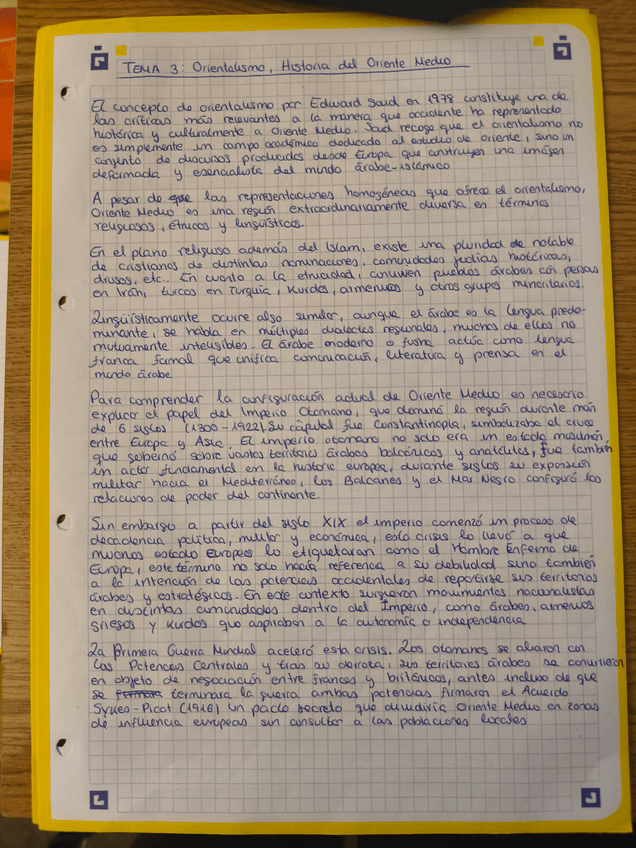 TEMA 3: Orientalismo, Historia del Oriente Medio
El concepto de orientalismo por Edward Said en 1978 constituye una de
las críticas más relevantes a la manera que occidente ha representado
histórica y culturalmente a Oriente Medio. Said recoge que el orientalismo no
es simplemente un campo académico dedicado al estudio de oriente, sino un
conjunto de discursos producidos desde Europa que construyen una imágen
deformada y esencialista del mundo árabe-islámico
A pesar de que las representaciones homogéneas que ofrece el orientalismo,
Oriente Medio es una región extraordinariamente diversa en términos
religiosos, étnicos y lingüísticos.
En el plano religioso además del Islam, existe una pluridad de notable
de cristianos de distintas nominaciones, comunidades judías históricas,
drusos, etc.. En cuanto a la etnicidad, conviven pueblos árabes con persas
en Irán, turcos en Turquía, Kurdos, armenios y otros grupos minoritarios.
Lingüísticamente ocurre algo similar, aunque el árabe es la lengua predo-
minante, se habla en múltiples dialectos regionales, muchos de ellos no
mutuamente inteligibles. El árabe moderno o fusha actúa como lengua
franca formal que unifica comunicación, literatura y prensa en el
mundo árabe
Para comprender la configuración actual de Oriente Medio es necesario
explicar el papel del Imperio Otomano, que dominó la región durante más
de 6 siglos (1300-1922). Su capital fue Constantinopla, simbolizaba el cruce
entre Europa y Asia. El imperio otomano no solo era un estado musulmán
que gobernó sobre vastos territorios árabes balcánicos y anatolios, fue también
un actor fundamental en la historia europea, durante siglos su expansión
militar hacia el Mediterráneo, los Balcanes y el Mar Negro configuró las
relaciones de poder del continente.
Sin embargo a partir del siglo XIX el imperio comenzó un proceso de
decadencia política, militar y económica, esta crisis lo llevó a que
muchos estado europeos lo etiquetaran como el Hombre Enfermo de
Europa, este término no solo hacía referencia a su debilidad sino también
a la intención de las potencias occidentales de repartirse sus territorios
árabes y estratégicos. En este contexto surgieron movimientos nacionalistas
en distintas comunidades dentro del Imperio, como árabes, armenios
griegos y kurdos que aspiraban a la autonomía o independencia
La Primera Guerra Mundial aceleró esta crisis. Los otomanos se aliaron con
las Potencias Centrales y tras su derrota, sus territorios árabes se convirtieron
en objeto de negociación entre franceses y británicos, antes incluso de que
se firmara terminara la guerra ambas potencias firmaron el Acuerdo
Sykes-Picot (1916) un pacto secreto que dividiría Oriente Medio en zonas
de influencia europeas sin consultar a las poblaciones locales